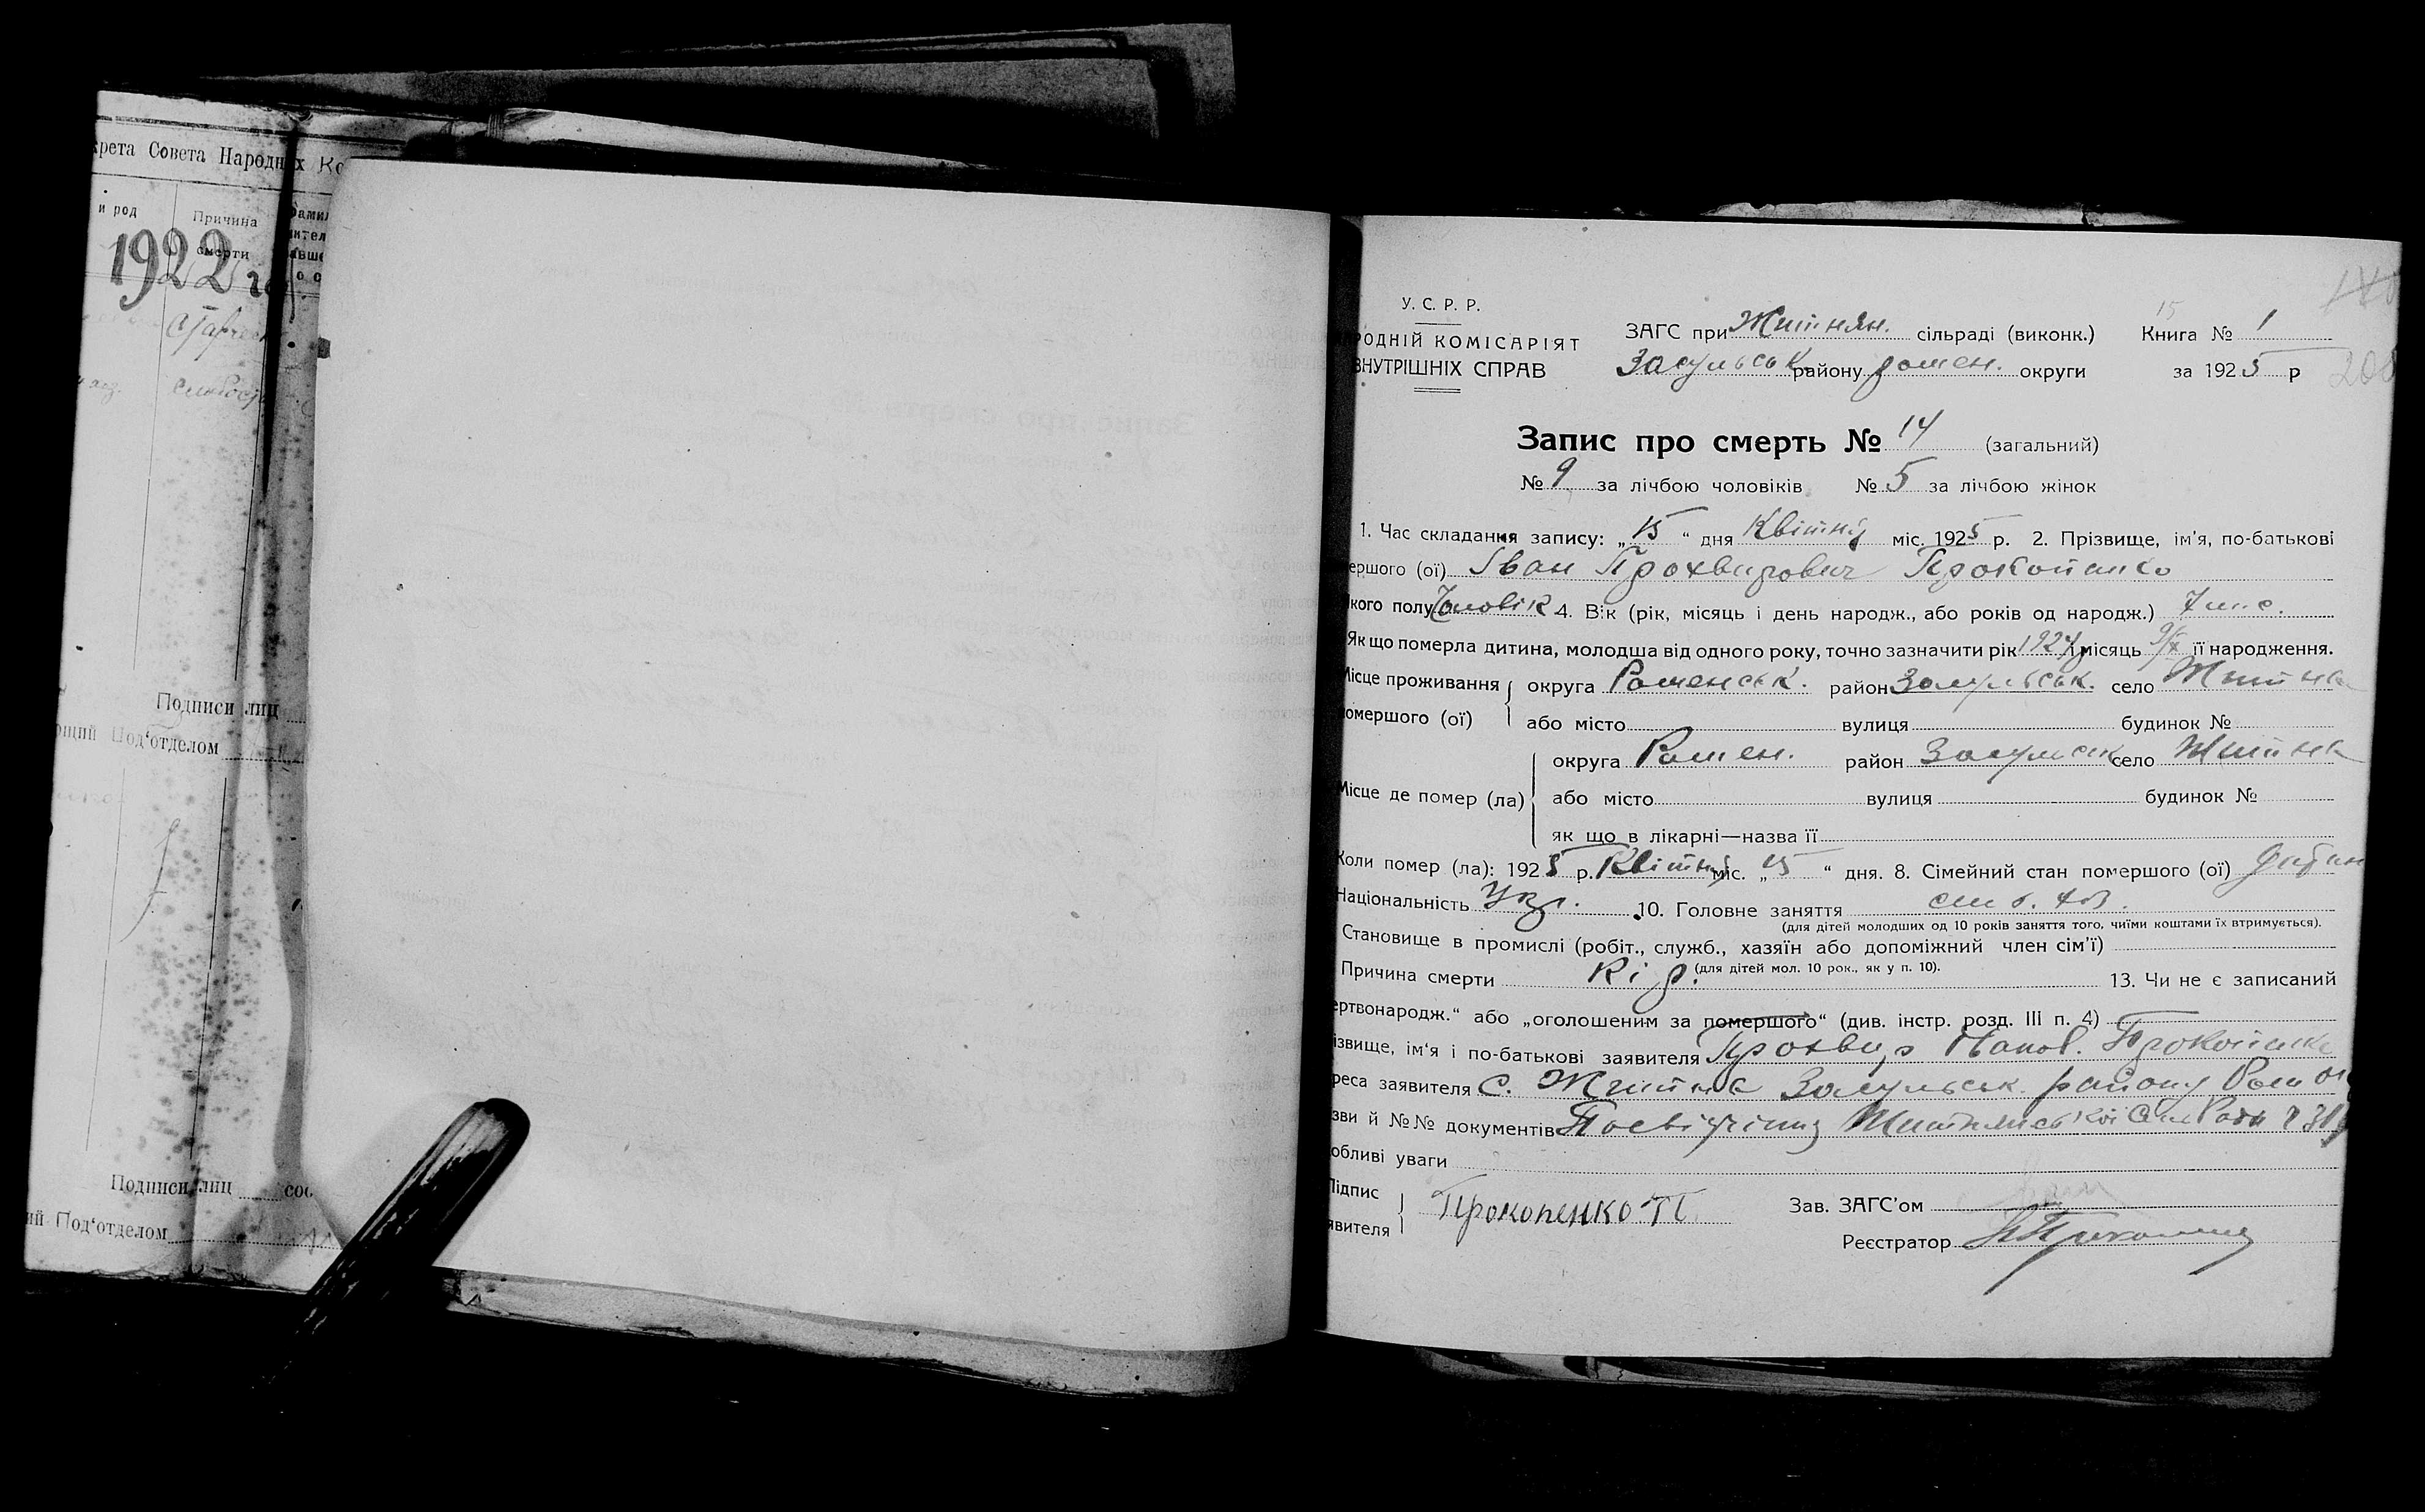 крета Совета Народных Ко
и род
Причина
смерти
1922 г
Подписи лиц
Под‘отделом
Подписи лиц
Под‘отделом
У. С. Р. Р.
РОДНІЙ КОМІСАРІЯТ
ВНУТРІШНІХ СПРАВ
ЗАГС при Житнян. сільраді (виконк.)
Засульськ. району Ромен. округи
15
Книга № 1
за 1925 р
200
Запис про смерть № 14 (загальний)
№ 9 за лічбою чоловіків № 5 за лічбою жінок
1. Час складання запису: „15“ дня Квітня міс. 1925 р. 2. Прізвище, ім'я, по-батькові
ершого (ої) Іван Прохвирович Прокопенко
кого полу Чоловік 4. Вік (рік, місяць і день народж., або років од народж.) 7 міс.
Як що померла дитина, молодша від одного року, точно зазначити рік 1924 місяць 9/ї її народження.
Місце проживання округа Роменськ. район Засульськ. село Житне
омершого (ої) або місто вулиця будинок №
округа Ромен. район Засульськ село Житне
Місце де помер (ла) або місто вулиця будинок №
як що в лікарні—назва її
Коли помер (ла): 1925 р. Квітня міс. „15“ дня. 8. Сімейний стан помершого (ої) дитин
Національність Укр. 10. Головне заняття
(для дітей молодших од 10 років заняття того, чиїми коштами їх втримується).
Становище в промислі (робіт., служб., хазяїн або допоміжний член сім'ї)
(для дітей мол. 10 рок., як у п. 10).
Причина смерти Кір. 13. Чи не є записаний
ертвонародж.“ або „оголошеним за помершого“ (див. інстр. розд. III п. 4)
ізвище, ім'я і по-батькові заявителя Прохвир Прокопенко
реса заявителя С. Житне Засульськ. району Ром
зви й №№ документів Посвідчіння Житнянської СілРади
обливі уваги
Підпис
явителя
Прокопенко П.
Зав. ЗАГС'ом
Реєстратор